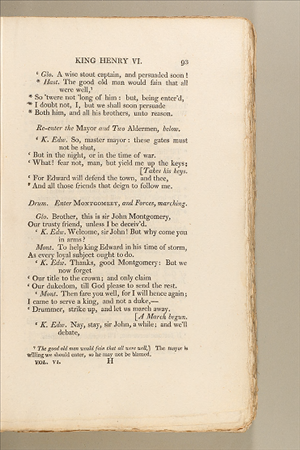 KING HENRY VI. 93
‘ Glo. A wise stout captain, and persuaded soon!
* Hast. The good old man would fain that all
were well,⁹
* So 'twere not 'long of him: but, being enter'd,
* I doubt not, I, but we shall soon persuade
* Both him, and all his brothers, unto reason.
Re-enter the Mayor and Two Aldermen, below.
‘ K. Edw. So, master mayor: these gates must
not be shut,
‘ But in the night, or in the time of war.
‘ What! fear not, man, but yield me up the keys;
[Takes his keys.
‘ For Edward will defend the town, and thee,
‘ And all those friends that deign to follow me.
Drum. Enter MONTGOMERY, and Forces, marching.
Glo. Brother, this is sir John Montgomery,
Our trusty friend, unless I be deceiv'd.
‘ K. Edw. Welcome, sir John! But why come you
in arms?
Mont. To help king Edward in his time of storm,
As every loyal subject ought to do.
‘ K. Edw. Thanks, good Montgomery: But we
now forget
‘ Our title to the crown; and only claim
‘ Our dukedom, till God please to send the rest.
‘ Mont. Then fare you well, for I will hence again;
I came to serve a king, and not a duke,—
‘ Drummer, strike up, and let us march away.
[A March begun.
‘ K. Edw. Nay, stay, sir John, a while; and we'll
debate,
⁹ The good old man would fain that all were well,] The mayor is
willing we should enter, so he may not be blamed.
VOL. VI. H